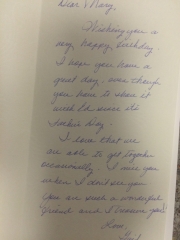 Dear Mary,
Wishing you a
very happy birthday.
I hope you have a
great day, even though
you have to share it
with     since it's
Day.
I love that we
are able to get together
occasionally. I miss you
when I don't see you
You are such a wonderful
friend and I treasure you!
Love,